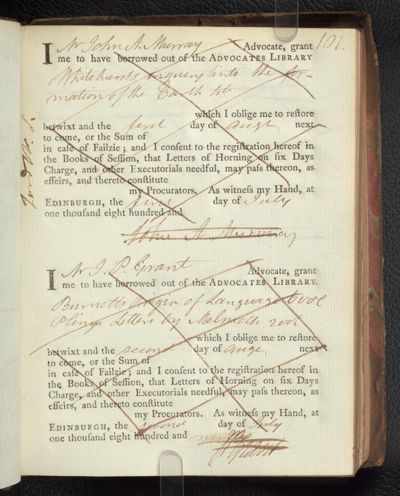 101.
I Mr John A. Murray Advocate, grant
me to have borrowed out of the ADVOCATES LIBRARY
Whitehursts enquiry into the for-
mation of the Earth
which I oblige me to reſtore
betwixt and the first day of Augt next
to come, or the Sum of
in caſe of Failzie; and I conſent to the regiſtration hereof in
the Books of Seſſion, that Letters of Horning on ſix Days
Charge, and other Executorials needful, may paſs thereon, as
effeirs, and thereto conſtitute
my Procurators. As witneſs my Hand, at
EDINBURGH, the first day of July
one thouſand eight hundred and
John A. Murray
I Mr J. P. Grant Advocate, grant
me to have borrowed out of the ADVOCATES LIBRARY.
Burnetts Origin of Language 6 vol
Plinys Letters by Melmoth 2 vol
which I oblige me to reſtore
betwixt and the second day of Augt next
to come, or the Sum of
in caſe of Failzie; and I conſent to the regiſtration hereof in
the Books of Seſſion, that Letters of Horning on ſix Days
Charge, and other Executorials needful, may paſs thereon, as
effeirs, and thereto conſtitute
my Procurators. As witneſs my Hand, at
EDINBURGH, the second day of July
one thouſand eight hundred and